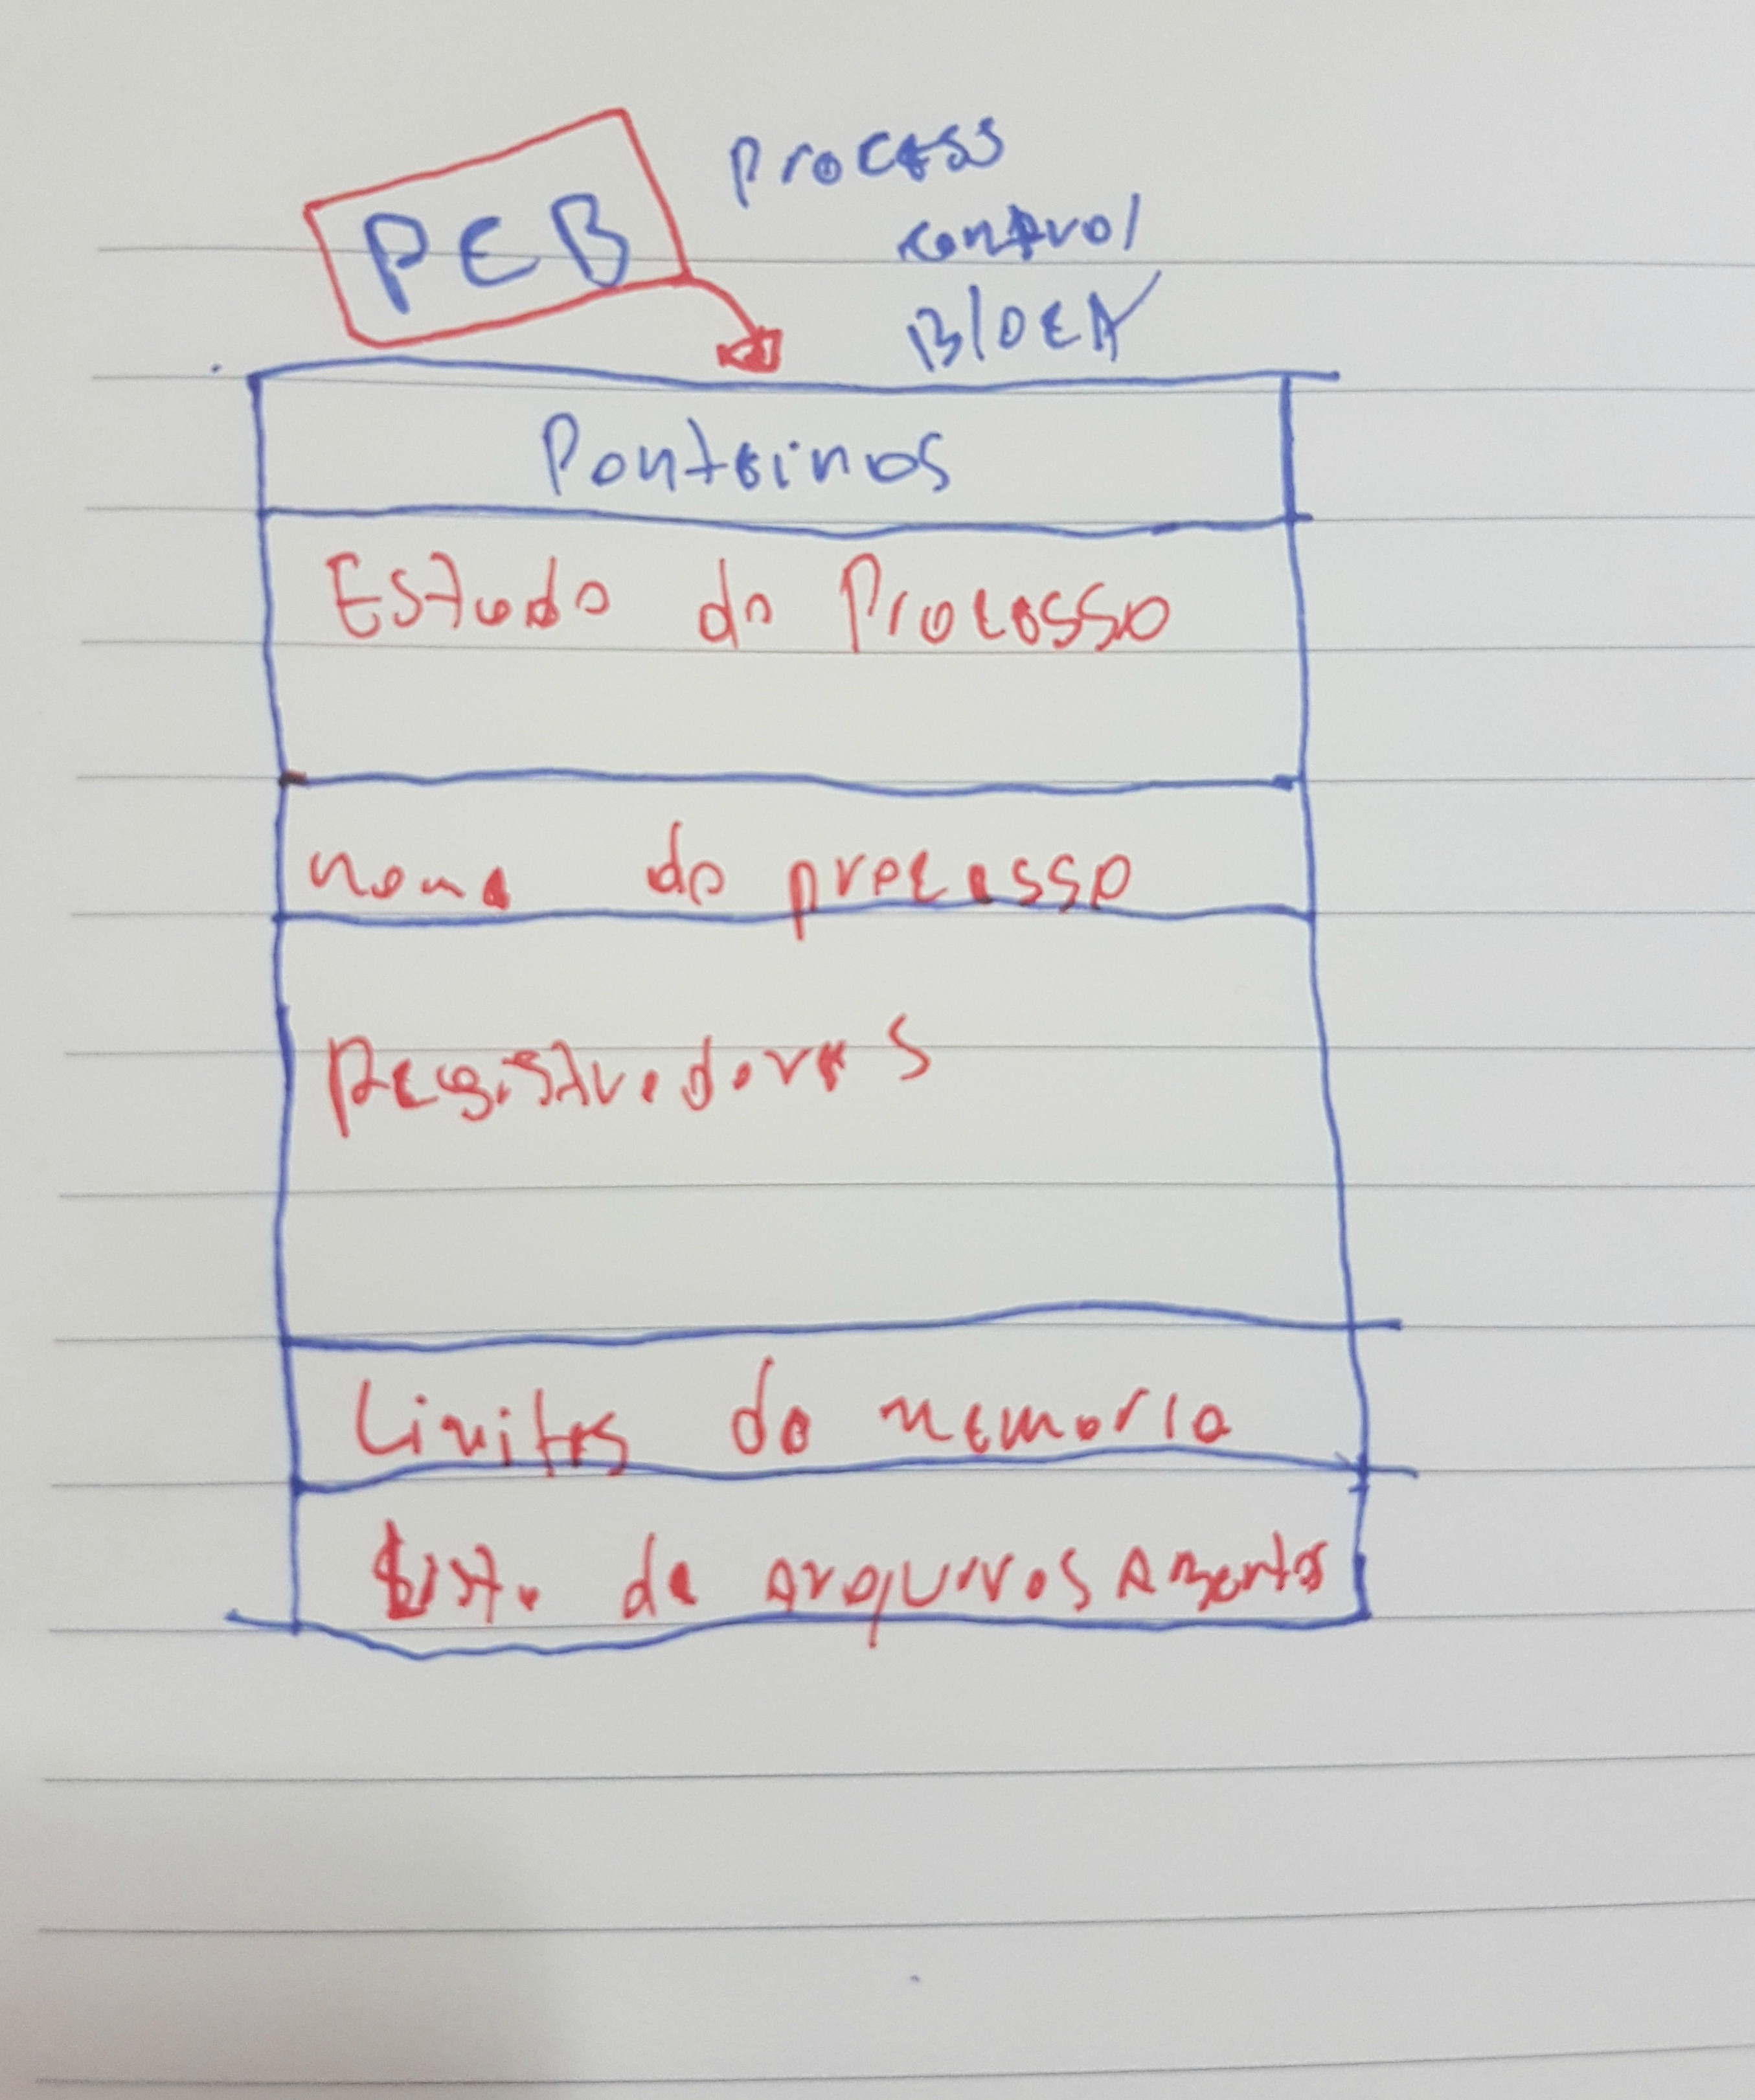 PCB
Process
control
Block
Ponteiros
Estado do Processo
nome do processo
Registradores
Limites de memoria
Lista de Arquivos Abertos